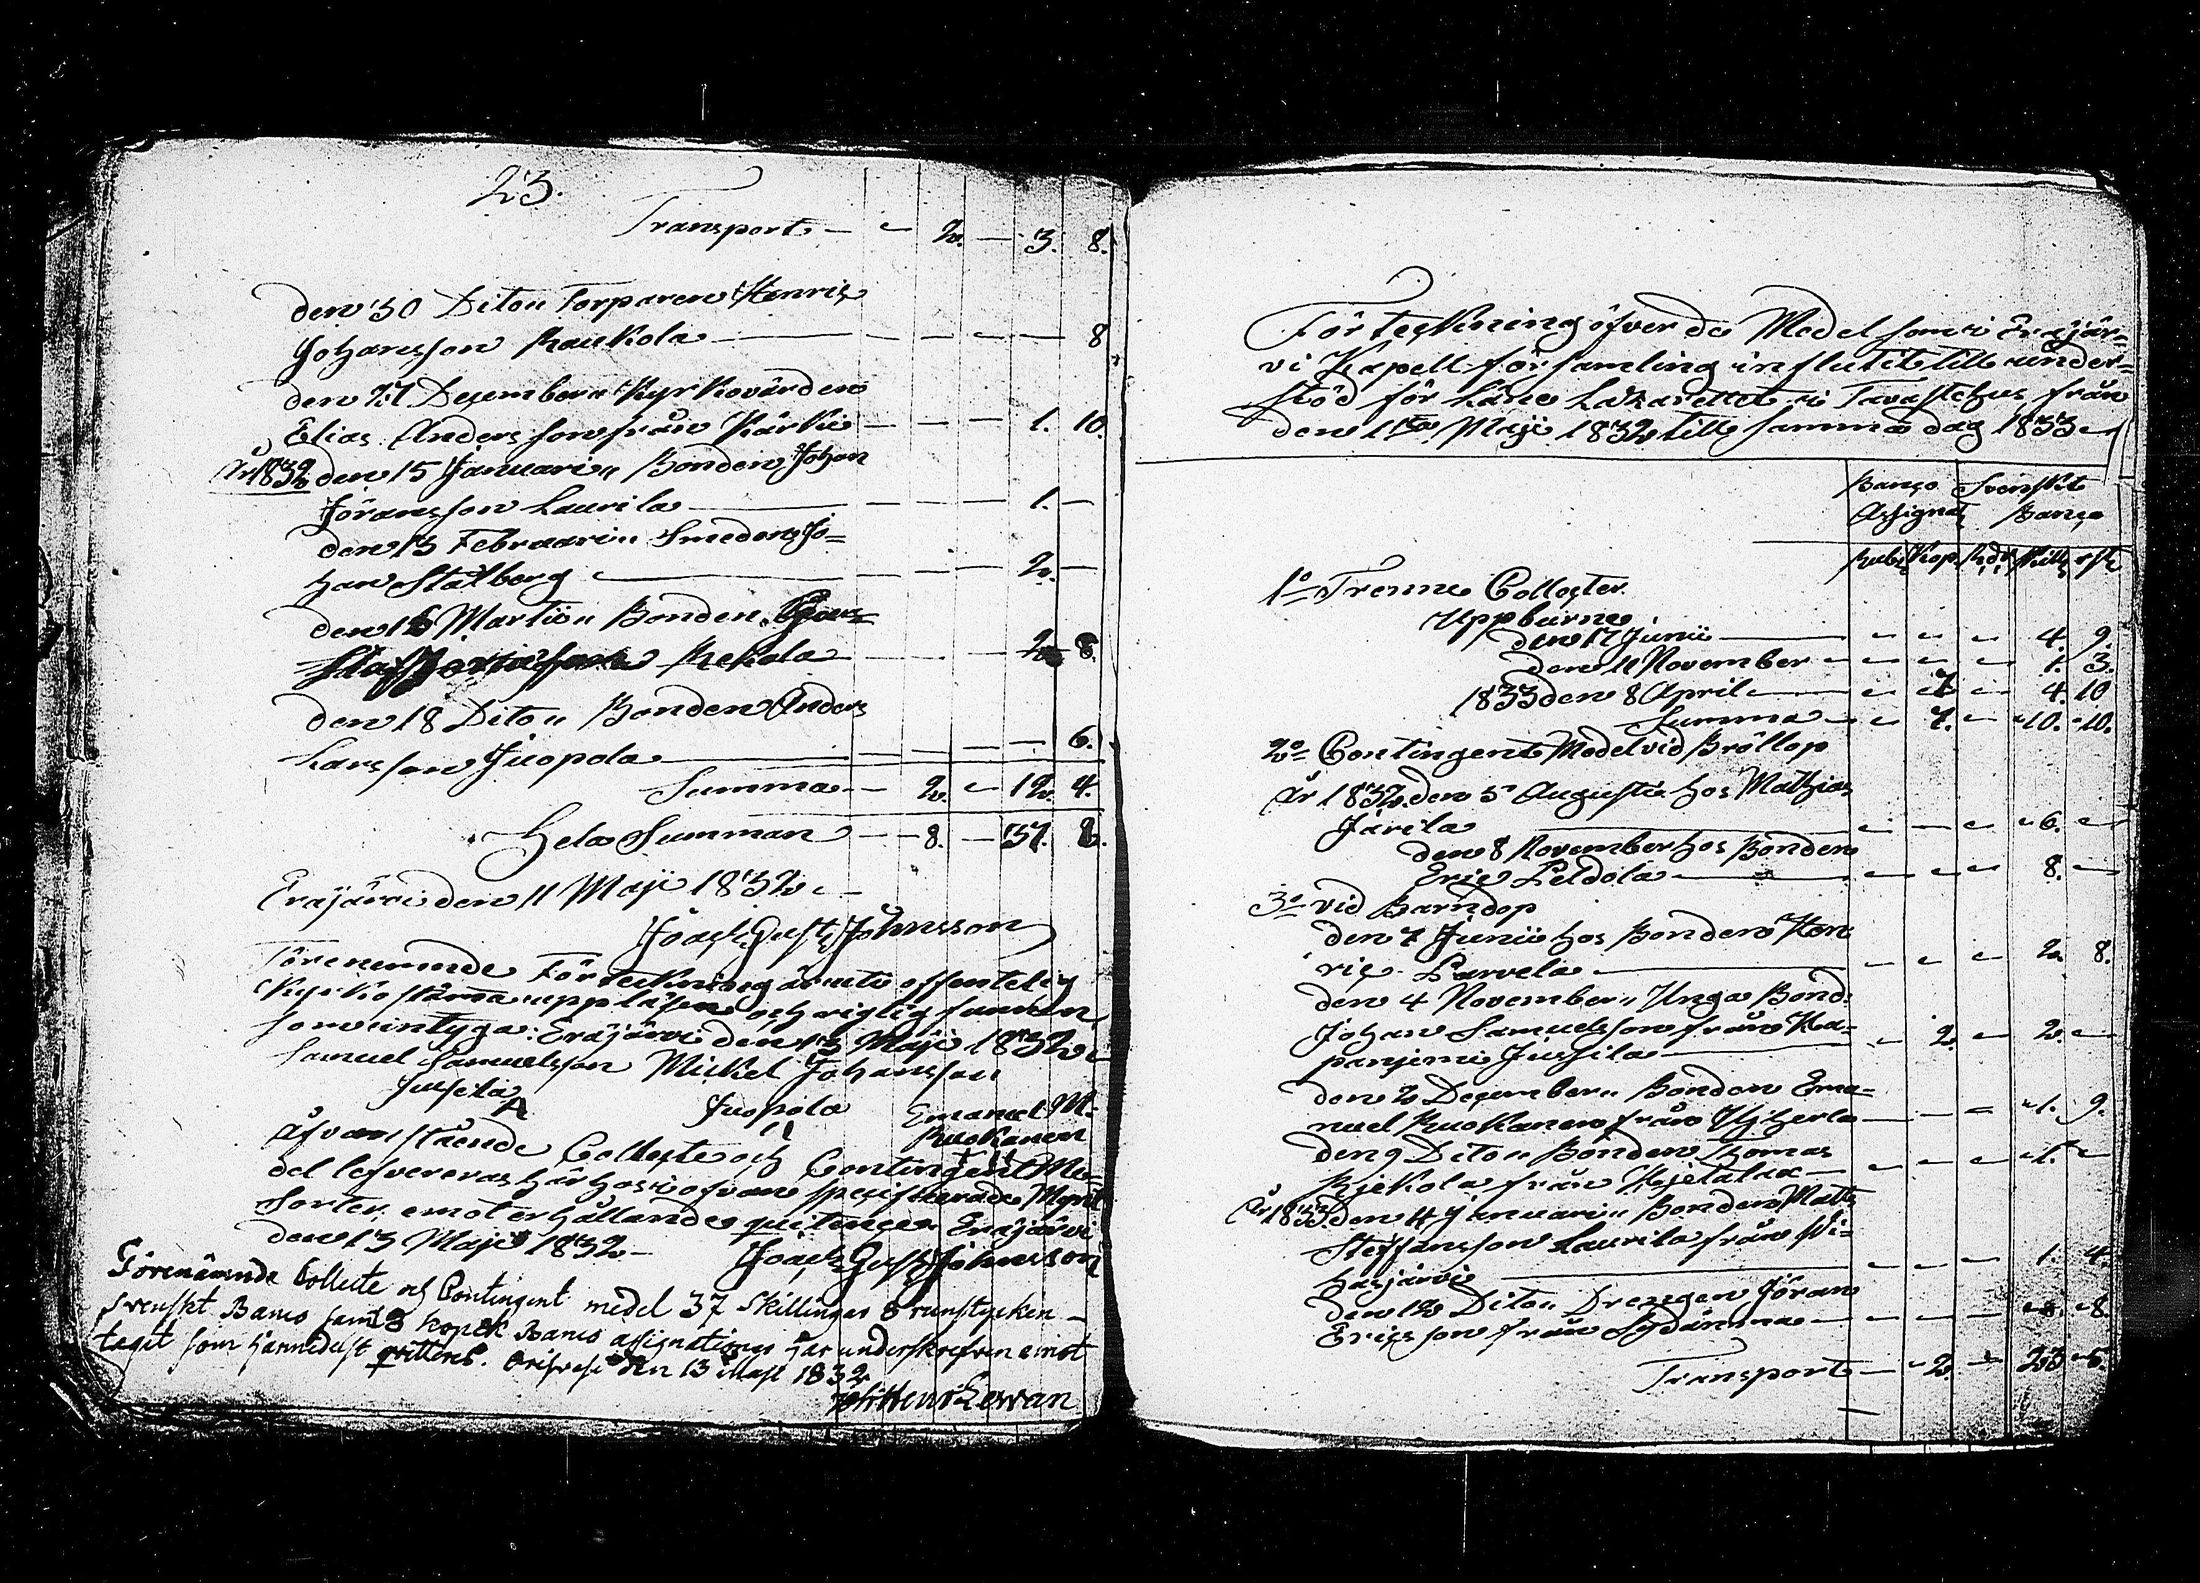 23.
Transport — — 2. — 3. 8.
den 30 Dito„ Torparen Henric
Johansson Raukola — — — — 8
den 27 December„ Kyrkovärden
Elias Andersson från Kärki — — — 1. 10.
År 1832 den 15 Januari„ Bonden Johan
Jöransson Laurila — — — 1. —
den 13 Februari„ Smeden Jo=
han Stålberg — — — 2. —
den 16 Martii„ Bonden
Rekola — — — 2. 8.
den 18 Dito„ Bonden Anders
Larsson Juopola — — — — 6.
Summa — 2. — 12. 4.
Hela Summan — — 8. — 37. 8.
Eräjärvi den 11 Maji 1832.
Joach. Gust. Johnsson
Förenemnde Förteckning är uti offentelig
Kyrkostämma uppläsen och rigtig funnen,
som intyga: Eräjärvi den 13 Maji 1832.
Samuel Samuelsson Mickel Johansson
Jussila Juopola Emanuel M.
Ruokanen
Afvanstående Collecte och Contingent Me=
del lefvereras härhos i ofvan specificerade Mynt
sorter emot erhållande quitence. Eräjärvi
den 13 Maji 1832 — Joach. Gust. Johnsson
Förenämnde Collecte och Contingent medel 37 Skillingar 8 runstycken
svenskt Banco samt 8 kopek Banco assignationer har underskrefven emot
tagit som härmedelst qvitteras. Orihvesi den 13 Maji 1832
Joh Henr Lewan
Förteckning öfver de Medel som i Eräjär=
vi Kapell församling influtit till under=
stöd för Läns Lazarettet i Tavastehus från
den 1sta Maji 1832 till samma dag 1833.
Banco Svenskt
Assignat. Banco
Rub. Kop. Rdr. Skill. rst.
1o Trenne Collecter
Uppburne
den 17 Junii — — — — 4. 9.
den 11 November — — — — 1. 3.
1833 den 8 April — — 7 — 4. 10
Summa — — 7. — 10. 10.
2o Contingent Medel vid Bröllop
År 1832 den 5 Augusti hos Mathias
Järila — — — — 6. —
den 8 November hos Bonden
Eric Peldola — — — — 8. —
3o vid Barndop
den 7 Junii hos Bonden Hen
ric Parvela — — — — 2. 8.
den 4 November„ Unga Bond.
Johan Samuelsson från Ka=
panjemi Jussila — — 2. — 2. —
den 2 December„ Bonden Ema=
nuel Ruokanen från Uiherla — — — — 1. 9.
den 9 Dito„ Bonden Thomas
från — — — — 1. —
År 1833 den 4 Januari„ Bonden Matts
Steffansson Laurila från Vi=
hasjärvi — — — — 1. 4.
den 12 Dito„ Drengen Jöran
Ericsson från Sydänmaa — — — — — 8.
Transport — 2. — 23. 5.